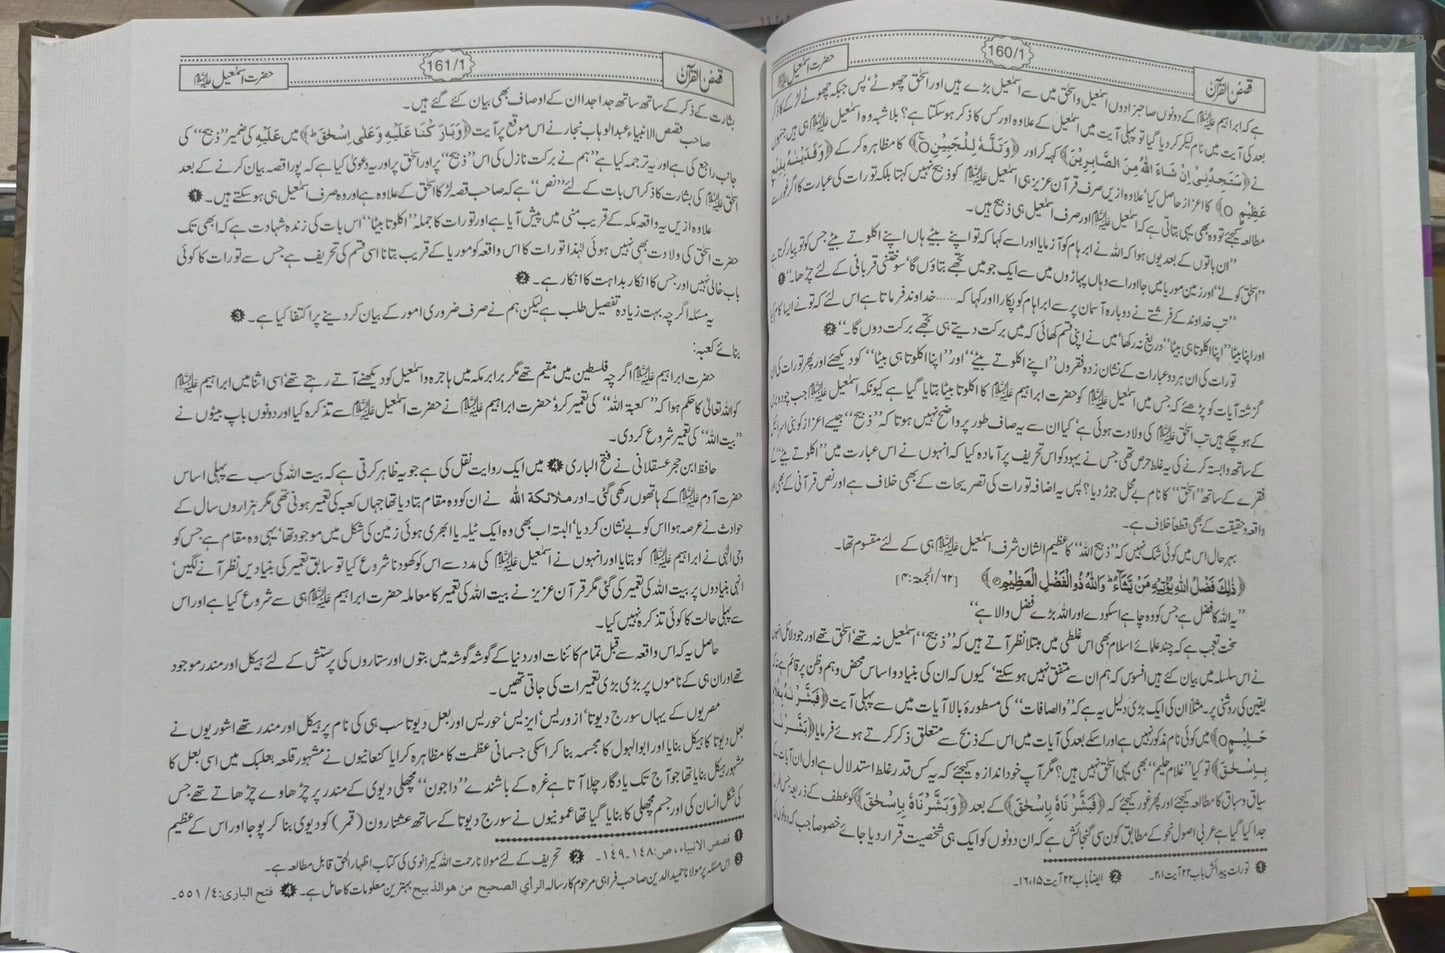 قصص القرآن
160/1
حضرت اسمٰعیل علیہ السلام
ہے کہ ابراہیم علیہ السلام کے دونوں صاحبزادوں اسمٰعیل و اسحٰق میں سے اسمٰعیل بڑے ہیں اور اسحٰق چھوٹے‘ پس جبکہ چھوٹے لڑکے کا ذکر
بعد کی آیت میں نام لیکر کر دیا گیا تو پہلی آیت میں اسمٰعیل کے علاوہ اور کس کا ذکر ہو سکتا ہے؟ بلاشبہ وہ اسمٰعیل علیہ السلام ہی ہیں جنہوں
نے ﴿سَتَجِدُنِیْ اِنْ شَاءَ اللہُ مِنَ الصَّابِرِیْنَ﴾ کہہ کر اور ﴿وَتَلَّہٗ لِلْجَبِیْنِ﴾ کا مظاہرہ کر کے ﴿وَفَدَیْنٰہُ بِذِبْحٍ
عَظِیْمٍ﴾ کا اعزاز حاصل کیا‘ علاوہ ازیں صرف قرآن عزیز ہی اسمٰعیل علیہ السلام کو ذبیح نہیں کہتا بلکہ تورات کی عبارت کا اگر غور سے
مطالعہ کیجئے تو وہ بھی یہی بتاتی ہے کہ اسمٰعیل علیہ السلام اور صرف اسمٰعیل ہی ذبیح ہیں۔
’’ان باتوں کے بعد یوں ہوا کہ اللہ نے ابرہام کو آزمایا اور اسے کہا کہ تو اپنے بیٹے ہاں اپنے اکلوتے بیٹے جس کو تو پیار کرتا ہے
’’اسحٰق کو لے‘‘ اور زمین موریا میں جا اور اسے وہاں پہاڑوں میں سے ایک جو میں تجھے بتاؤں گا‘ سوختنی قربانی کے لئے چڑھا۔‘‘ 1
’’تب خداوند کے فرشتے نے دوبارہ آسمان پر سے ابراہام کو پکارا اور کہا کہ ...... خداوند فرماتا ہے اس لئے کہ تو نے ایسا کام کیا
اور اپنا بیٹا ’’اپنا اکلوتا ہی بیٹا‘‘ دریغ نہ رکھا‘ میں نے اپنی قسم کھائی کہ میں برکت دیتے ہی تجھے برکت دوں گا۔‘‘ 2
تورات کی ان ہر دو عبارات کے نشان زدہ فقروں ’’اپنے اکلوتے بیٹے‘‘ اور ’’اپنا اکلوتا ہی بیٹا‘‘ کو دیکھئے اور پھر تورات کی ان
گزشتہ آیات کو پڑھئے کہ جس میں اسمٰعیل علیہ السلام کو حضرت ابراہیم علیہ السلام کا اکلوتا بیٹا بتایا گیا ہے کیونکہ اسمٰعیل علیہ السلام جب چودہ سال
کے ہو چکے ہیں تب اسحٰق علیہ السلام کی ولادت ہوئی ہے‘ کیا ان سے یہ صاف طور پر واضح نہیں ہوتا کہ ’’ذبیح‘‘ جیسے اعزاز کو بنی اسرائیل
کے ساتھ وابستہ کرنے کی یہ غلط حرص تھی جس نے یہود کو اس تحریف پر آمادہ کیا کہ انہوں نے اس عبارت میں ’’اکلوتے بیٹے‘‘ کے
فقرے کے ساتھ ’’اسحٰق‘‘ کا نام بے محل جوڑ دیا؟ پس یہ اضافہ تورات کی تصریحات کے بھی خلاف ہے اور نص قرآنی کے بھی اور
واقعہ و حقیقت کے بھی قطعاً خلاف ہے۔
بہرحال اس میں کوئی شک نہیں کہ ’’ذبیح اللہ‘‘ کا عظیم الشان شرف اسمٰعیل علیہ السلام ہی کے لئے مقسوم تھا۔
﴿ذٰلِکَ فَضْلُ اللہِ یُؤْتِیْہِ مَنْ یَّشَآءُ وَاللہُ ذُو الْفَضْلِ الْعَظِیْمِ﴾ [۶۲/الجمعۃ:۴]
’’یہ اللہ کا فضل ہے جس کو وہ چاہے اسکو دے اور اللہ بڑے فضل والا ہے‘‘
سخت تعجب ہے کہ چند علمائے اسلام بھی اس غلطی میں مبتلا نظر آتے ہیں کہ ’’ذبیح‘‘ اسمٰعیل نہ تھے‘ اسحٰق تھے اور جو دلائل انہوں
نے اس سلسلہ میں بیان کئے ہیں افسوس کہ ہم ان سے متفق نہیں ہو سکتے‘ کیوں کہ ان کی بنیاد و اساس محض وہم و ظن پر قائم ہے نہ کہ
یقین کی روشنی پر۔ مثلاً ان کی ایک بڑی دلیل یہ ہے کہ ’’والصافات‘‘ کی مسطورۂ بالا آیات میں سے پہلی آیت ﴿فَبَشَّرْنٰہُ بِغُلٰمٍ
حَلِیْمٍ﴾ میں کوئی نام مذکور نہیں ہے اور اسکے بعد کی آیات میں اس کے ذبح سے متعلق ذکر کرتے ہوئے فرمایا ﴿بَشَّرْنٰہُ
بِاِسْحٰقَ﴾ تو کیا ’’غلام حلیم‘‘ بھی یہی اسحٰق نہیں ہیں؟ مگر آپ خود اندازہ کیجئے کہ یہ کس قدر غلط استدلال ہے اول ان آیات کے
سیاق و سباق کا مطالعہ کیجئے اور پھر غور کیجئے کہ ﴿فَبَشَّرْنَاہُ بِاِسْحٰقَ﴾ کے بعد ﴿وَبَشَّرْنَاہُ بِاِسْحٰقَ﴾ کو عطف کے ذریعہ جس طرح
جدا کیا گیا ہے عربی اصول نحو کے مطابق کون سی گنجائش ہے کہ ان دونوں کو ایک ہی شخصیت قرار دیا جائے خصوصاً جب کہ دونوں کی
1 تورات پیدائش باب ۲۲ آیت ۱،۲۔ 2 ایضاً باب ۲۲ آیت ۱۵،۱۶۔
قصص القرآن
161/1
حضرت اسمٰعیل علیہ السلام
بشارت کے ذکر کے ساتھ ساتھ جدا جدا ان کے اوصاف بھی بیان کئے گئے ہیں۔
صاحب قصص الانبیاء عبدالوہاب نجار نے اس موقع پر آیت ﴿وَبَارَکْنَا عَلَیْہِ وَعَلٰی اِسْحٰقَ ط﴾ میں عَلَیْہِ کی ضمیر ’’ذبیح‘‘ کی
جانب راجع کی ہے اور یہ ترجمہ کیا ہے ’’ہم نے برکت نازل کی اس ’’ذبیح‘‘ پر اور اسحٰق پر اور یہ دعویٰ کیا ہے کہ پورا قصہ بیان کرنے کے بعد
اسحٰق علیہ السلام کی بشارت کا ذکر اس بات کے لئے ’’نص‘‘ ہے کہ صاحب قصہ لڑکا اسحٰق کے علاوہ ہے اور وہ صرف اسمٰعیل ہی ہو سکتے ہیں۔ 1
علاوہ ازیں یہ واقعہ مکہ کے قریب منیٰ میں پیش آیا ہے اور تورات کا جملہ ’’اکلوتا بیٹا‘‘ اس بات کی زندہ شہادت ہے کہ ابھی تک
حضرت اسحٰق کی ولادت بھی نہیں ہوئی لہٰذا تورات کا اس واقعہ کو موریا کے قریب بتانا اسی قسم کی تحریف ہے جس سے تورات کا کوئی
باب خالی نہیں اور جس کا انکار بداہت کا انکار ہے۔ 2
یہ مسئلہ اگرچہ بہت زیادہ تفصیل طلب ہے لیکن ہم نے صرف ضروری امور کے بیان کر دینے پر اکتفا کیا ہے۔ 3
بنائے کعبہ:
حضرت ابراہیم علیہ السلام اگرچہ فلسطین میں مقیم تھے مگر برابر مکہ میں ہاجرہ و اسمٰعیل کو دیکھنے آتے رہتے تھے‘ اسی اثنا میں ابراہیم علیہ السلام
کو اللہ تعالیٰ کا حکم ہوا کہ ’’کعبۃ اللہ‘‘ کی تعمیر کرو‘ حضرت ابراہیم علیہ السلام نے حضرت اسمٰعیل علیہ السلام سے تذکرہ کیا اور دونوں باپ بیٹوں نے
’’بیت اللہ‘‘ کی تعمیر شروع کر دی۔
حافظ ابن حجر عسقلانی نے فتح الباری 4 میں ایک روایت نقل کی ہے جو یہ ظاہر کرتی ہے کہ بیت اللہ کی سب سے پہلی اساس
حضرت آدم علیہ السلام کے ہاتھوں رکھی گئی۔ اور ملائکۃ اللہ نے ان کو وہ مقام بتا دیا تھا جہاں کعبہ کی تعمیر ہونی تھی مگر ہزاروں سال کے
حوادث نے عرصہ ہوا اس کو بے نشان کر دیا‘ البتہ اب بھی وہ ایک ٹیلہ یا ابھری ہوئی زمین کی شکل میں موجود تھا‘ یہی وہ مقام ہے جس کو
وحی الٰہی نے ابراہیم علیہ السلام کو بتایا اور انہوں نے اسمٰعیل علیہ السلام کی مدد سے اس کو کھودنا شروع کیا تو سابق تعمیر کی بنیادیں نظر آنے لگیں‘
انہی بنیادوں پر بیت اللہ کی تعمیر کی گئی مگر قرآن عزیز نے بیت اللہ کی تعمیر کا معاملہ حضرت ابراہیم علیہ السلام ہی سے شروع کیا ہے اور اس
سے پہلی حالت کا کوئی تذکرہ نہیں کیا۔
حاصل یہ کہ اس واقعہ سے قبل تمام کائنات اور دنیا کے گوشہ گوشہ میں بتوں اور ستاروں کی پرستش کے لئے ہیکل اور مندر موجود
تھے اور ان ہی کے ناموں پر بڑی بڑی تعمیرات کی جاتی تھیں۔
مصریوں کے یہاں سورج دیوتا‘ ازوریس‘ ایزیس‘ حوریس اور بعل دیوتا سب ہی کی نام پر ہیکل اور مندر تھے اشوریوں نے
بعل دیوتا کا ہیکل بنایا اور ابوالہول کا مجسمہ بنا کر اسکی جسمانی عظمت کا مظاہرہ کرایا کنعانیوں نے مشہور قلعہ بعلبک میں اسی بعل کا
مشہور ہیکل بنایا تھا جو آج تک یادگار چلا آتا ہے غزہ کے باشندے ’’داجون‘‘ مچھلی دیوی کے مندر پر چڑھاوے چڑھاتے تھے‘ جس
کی شکل انسان کی اور جسم مچھلی کا بنایا گیا تھا عمونیوں نے سورج دیوتا کے ساتھ عشتارون (قمر) کو دیوی بنا کر پوجا اور اس کے عظیم
1 قصص الانبیاء، ص: ۱۴۸۔۱۴۹۔ 2 تحریف کے لئے مولانا رحمت اللہ کیرانوی کی کتاب اظہار الحق قابل مطالعہ ہے۔
3 اس مسئلہ پر مولانا حمید الدین صاحب فراہی مرحوم کا رسالہ الرأی الصحیح من ھو الذبیح بہترین معلومات کا حامل ہے۔ 4 فتح الباری: ۴/ ۵۵۱۔